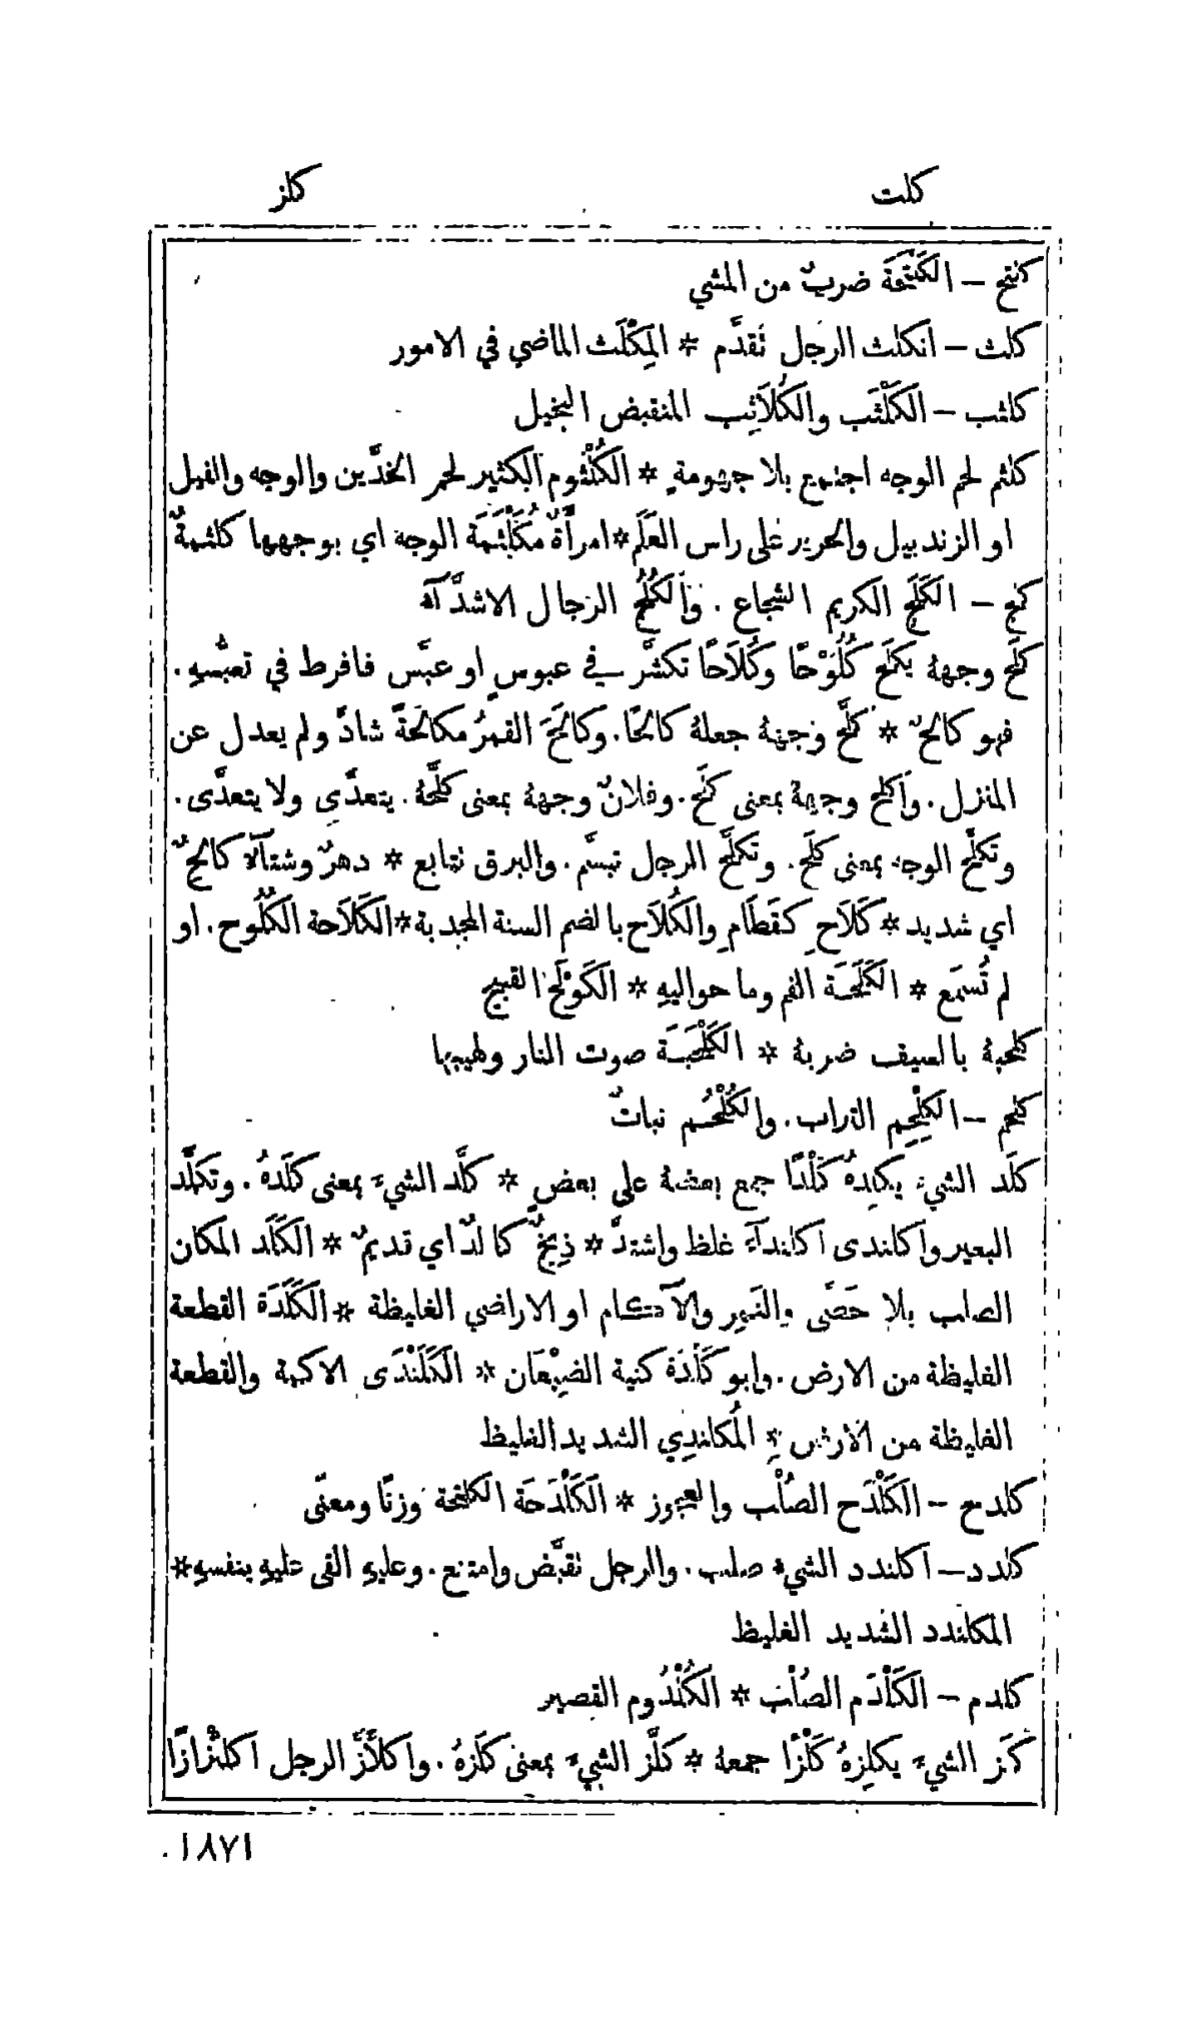 كلت
كلز
كلتح – الكَلْتَحَة ضربٌ من المشي
كلث – انكلث الرجل تقدَّم * المِكْلَث الماضي في الامور
كلثب – الكَلْثَب والكُلَاثِب المنقبض البخيل
كلثم لحم الوجه اجتمع بلا جهومةٍ * الكُلْثُوم الكثير لحم الخدَّين والوجه والفيل
او الزندبيل والحرير على راس العَلَم * امرأَةٌ مُكَلْثَمَة الوجه اي بوجهها كلثمةٌ
كلج – الكَلَج الكريم الشجاع . والكُلُج الرجال الاشدَّآء
كلَح وجههُ يكلَح كُلُوْحًا وكُلَاحًا تكشَّر في عبوسٍ او عبَّس فافرط في تعبُّسهِ .
فهو كالحٌ * كلَّح وجههُ جعلهُ كالحًا . وكالَحَ القمرُ مكالحَةً شادَّ ولم يعدل عن
المنزل . وأكلح وجههُ بمعنى كلَح . وفلانٌ وجههُ بمعنى كلَّحهُ . يتعدَّى ولا يتعدَّى .
وتكلَّح الوجه بمعنى كلَح . وتكلَّح الرجل تبسَّم . والبرق تتابع * دهرٌ وشتآءٌ كالحٌ
اي شديد * كَلَاحِ كقَطَامِ والكُلَاح بالضم السنة المجدبة * الكَلَاحة الكُلُوح . او
لم تُسمَع * الكَلَحَة الفم وما حواليهِ * الكَوْلَح القبيح
كلحبهُ بالسيف ضربهُ * الكَلْحَبَة صوت النار ولهيبها
كلحم – الكِلْحِم التراب . والكُلْحُم نباتٌ
كلَد الشيءَ يكلِدهُ كَلْدًا جمع بعضهُ على بعضٍ * كلَّد الشيءَ بمعنى كلَدهُ . وتكلَّد
البعير واكلندى اكلندآءً غلظ واشتدَّ * ذِيخٌ كالدٌ اي قديمٌ * الكَلَد المكان
الصلب بلا حَصًى والنَمِر والآكام او الاراضي الغليظة * الكَلَدَة القطعة
الغليظة من الارض . وابو كَلَدَة كنية الضِبْعَان * الكَلَنْدَى الاكمة والقطعة
الغليظة من الارض * المُكلندِي الشديد الغليظ
كلدح – الكَلْدَح الصُلْب والعجوز * الكَلْدَحَة الكلتحة وزنًا ومعنًى
كلدد – اكلندد الشيءُ صلب . والرجل تقبَّض وامتنع . وعليهِ القى عليهِ بنفسهِ *
المكلندد الشديد الغليظ
كلدم – الكَلْدَم الصُلْب * الكُلْدُوم القصير
كلَز الشيءَ يكلِزهُ كَلْزًا جمعهُ * كلَّز الشيءَ بمعنى كلَزهُ . واكلأَزَّ الرجل اكلئْزازًا
١٨٧١ .